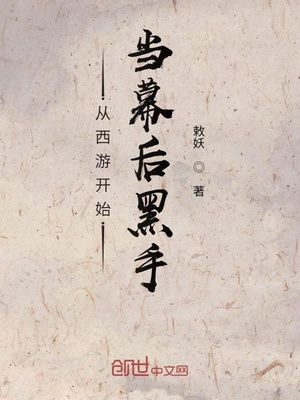 从西游开始
当幕后黑手
敕妖◎著
创世中文网